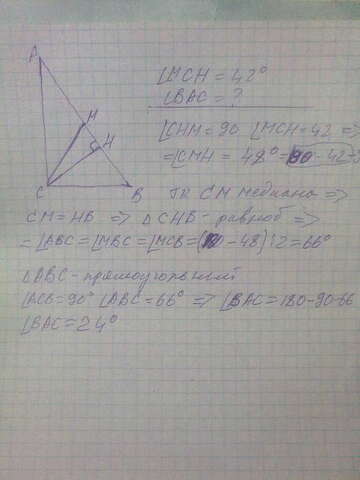 A
M
H
C
B
∠MCH = 42°
∠BAC = ?
∠CHM = 90 ∠MCH = 42 =>
= ∠CMH = 48° = 90 - 42 =>
Тк CM медиана =>
CM = MB => △CHB - равноб =>
= ∠ABC = ∠MBC = ∠MCB = ( - 48) : 2 = 66°
△ABC - прямоугольный
∠ACB = 90° ∠ABC = 66° => ∠BAC = 180 - 90 - 66
∠BAC = 24°